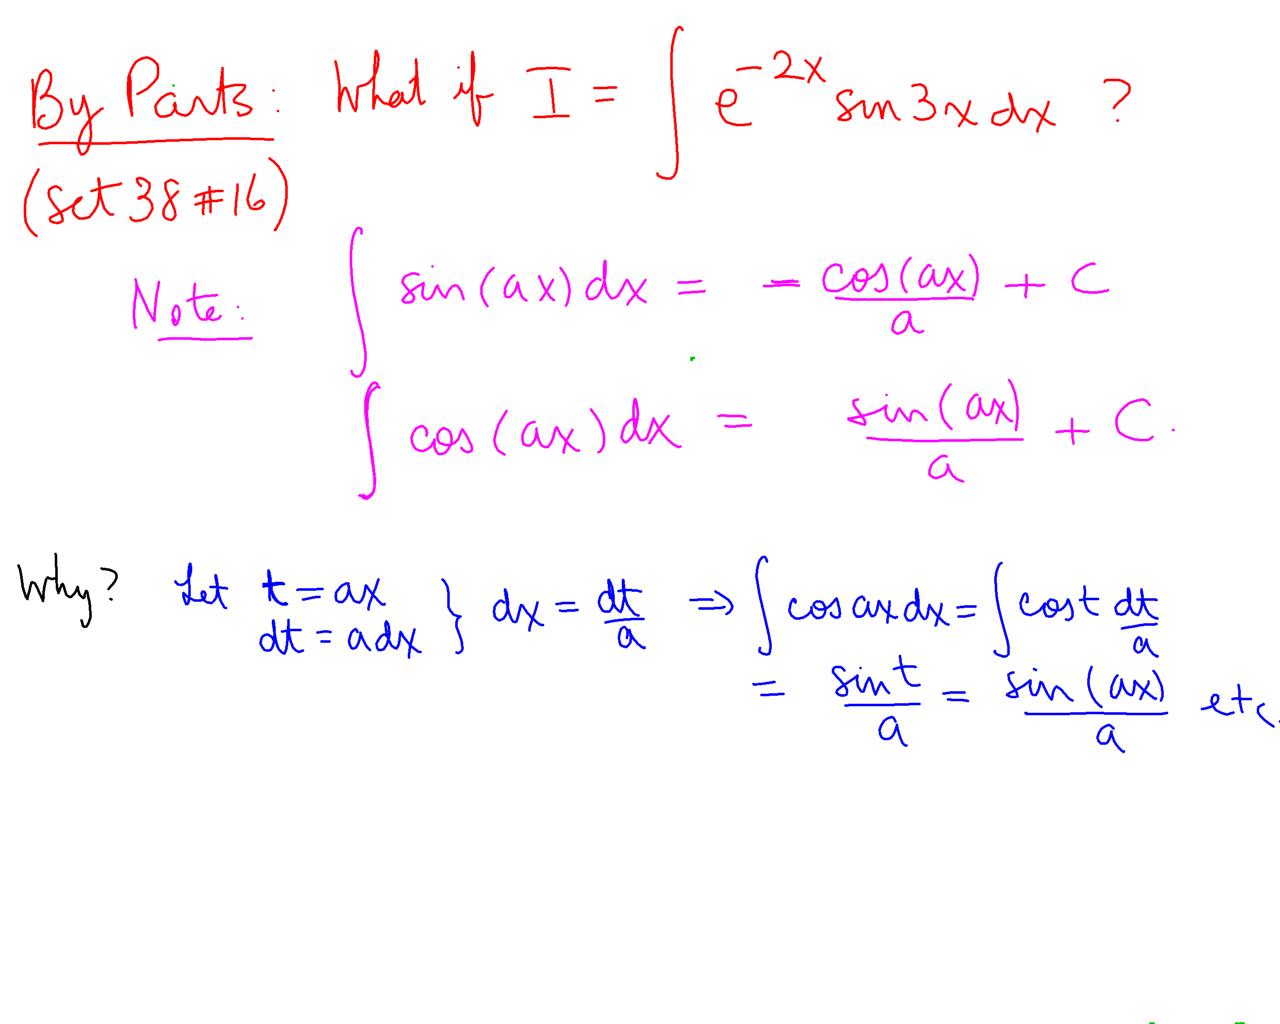 By Parts: What if I = ∫ e^{-2x} sin 3x dx ?
(set 38 #16)
Note: ∫ sin(ax) dx = - cos(ax)/a + C
∫ cos(ax) dx = sin(ax)/a + C.
Why? Let t = ax } dx = dt/a ⇒ ∫ cos ax dx = ∫ cos t dt/a
dt = a dx
= sin t/a = sin(ax)/a etc.